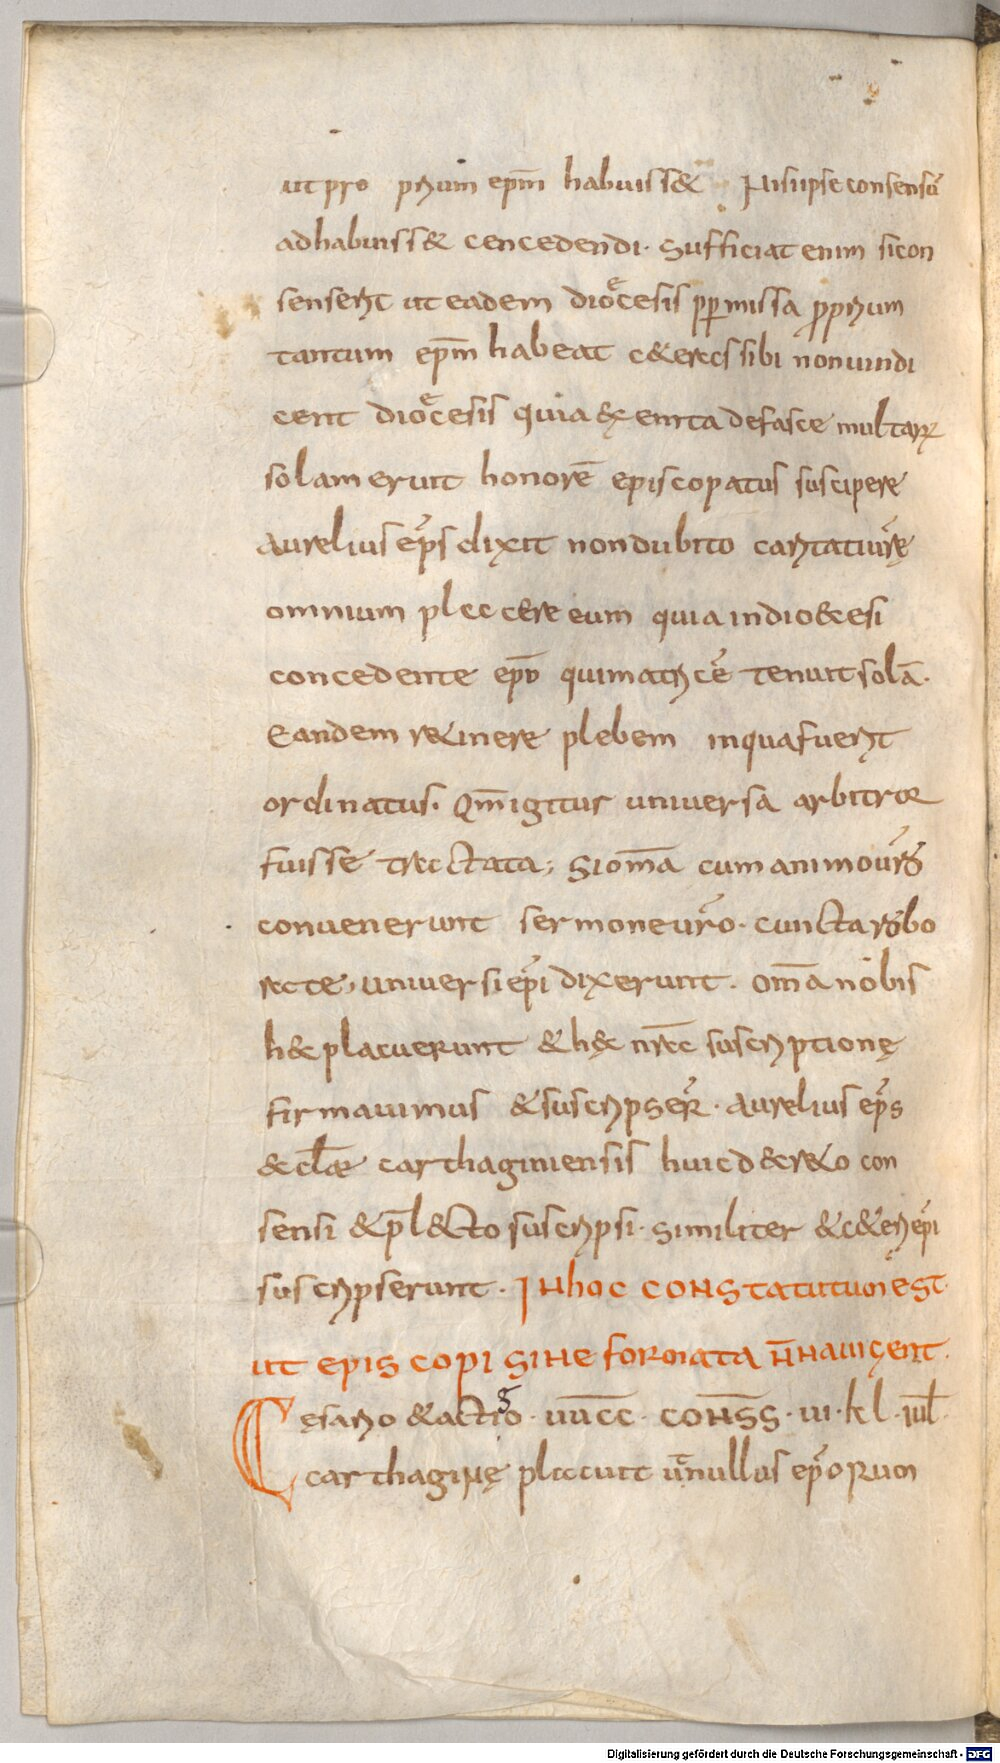 ut pro prium epm̄ habuiss& Nisi ipse consensū
adhabuiss& cencedendi· sufficiat enim si con
senserit ut eadem diocesis permissa proprium
tantum ep̄m habeat c&eras sibi non uindi
cent diocesis quia exenta defasce multarꝝ
sola meruit honorē episcopatus suscipere
Aurelius ep̄s dixit non dubito caritati ur̄ę
omnium placere eum quia in dio&cesi
concedente ep̄o qui matricē tenuit solā·
Eandem r&inere plebem in qua fuerit
ordinatus· Qm̄ igitur uniuersa arbitror
fuisse tractata; si om̄a cum animo ur̄o
conuenerunt sermone ur̄o· cuncta robo
rate, uniuersi ep̄i dixerunt· om̄a nobis
h&c placuerunt & hęc nr̄a suscriptionę
firmauimus & suscripser̄· Aurelius ep̄s
&ccl̄ae carthaginiensis huic d&cr&o con
sensi & p̄l&cto suscripsi· similiter & c&eri ep̄i
suscripserunt· IN hoc CONStatutum est·
ut episcopi siNe formata n̄ Nauigent·
Cęsario & actico· uūcc· coN̄ss· ui· kl· iul̄·
carthagiNę placuit ut nullus ep̄orum